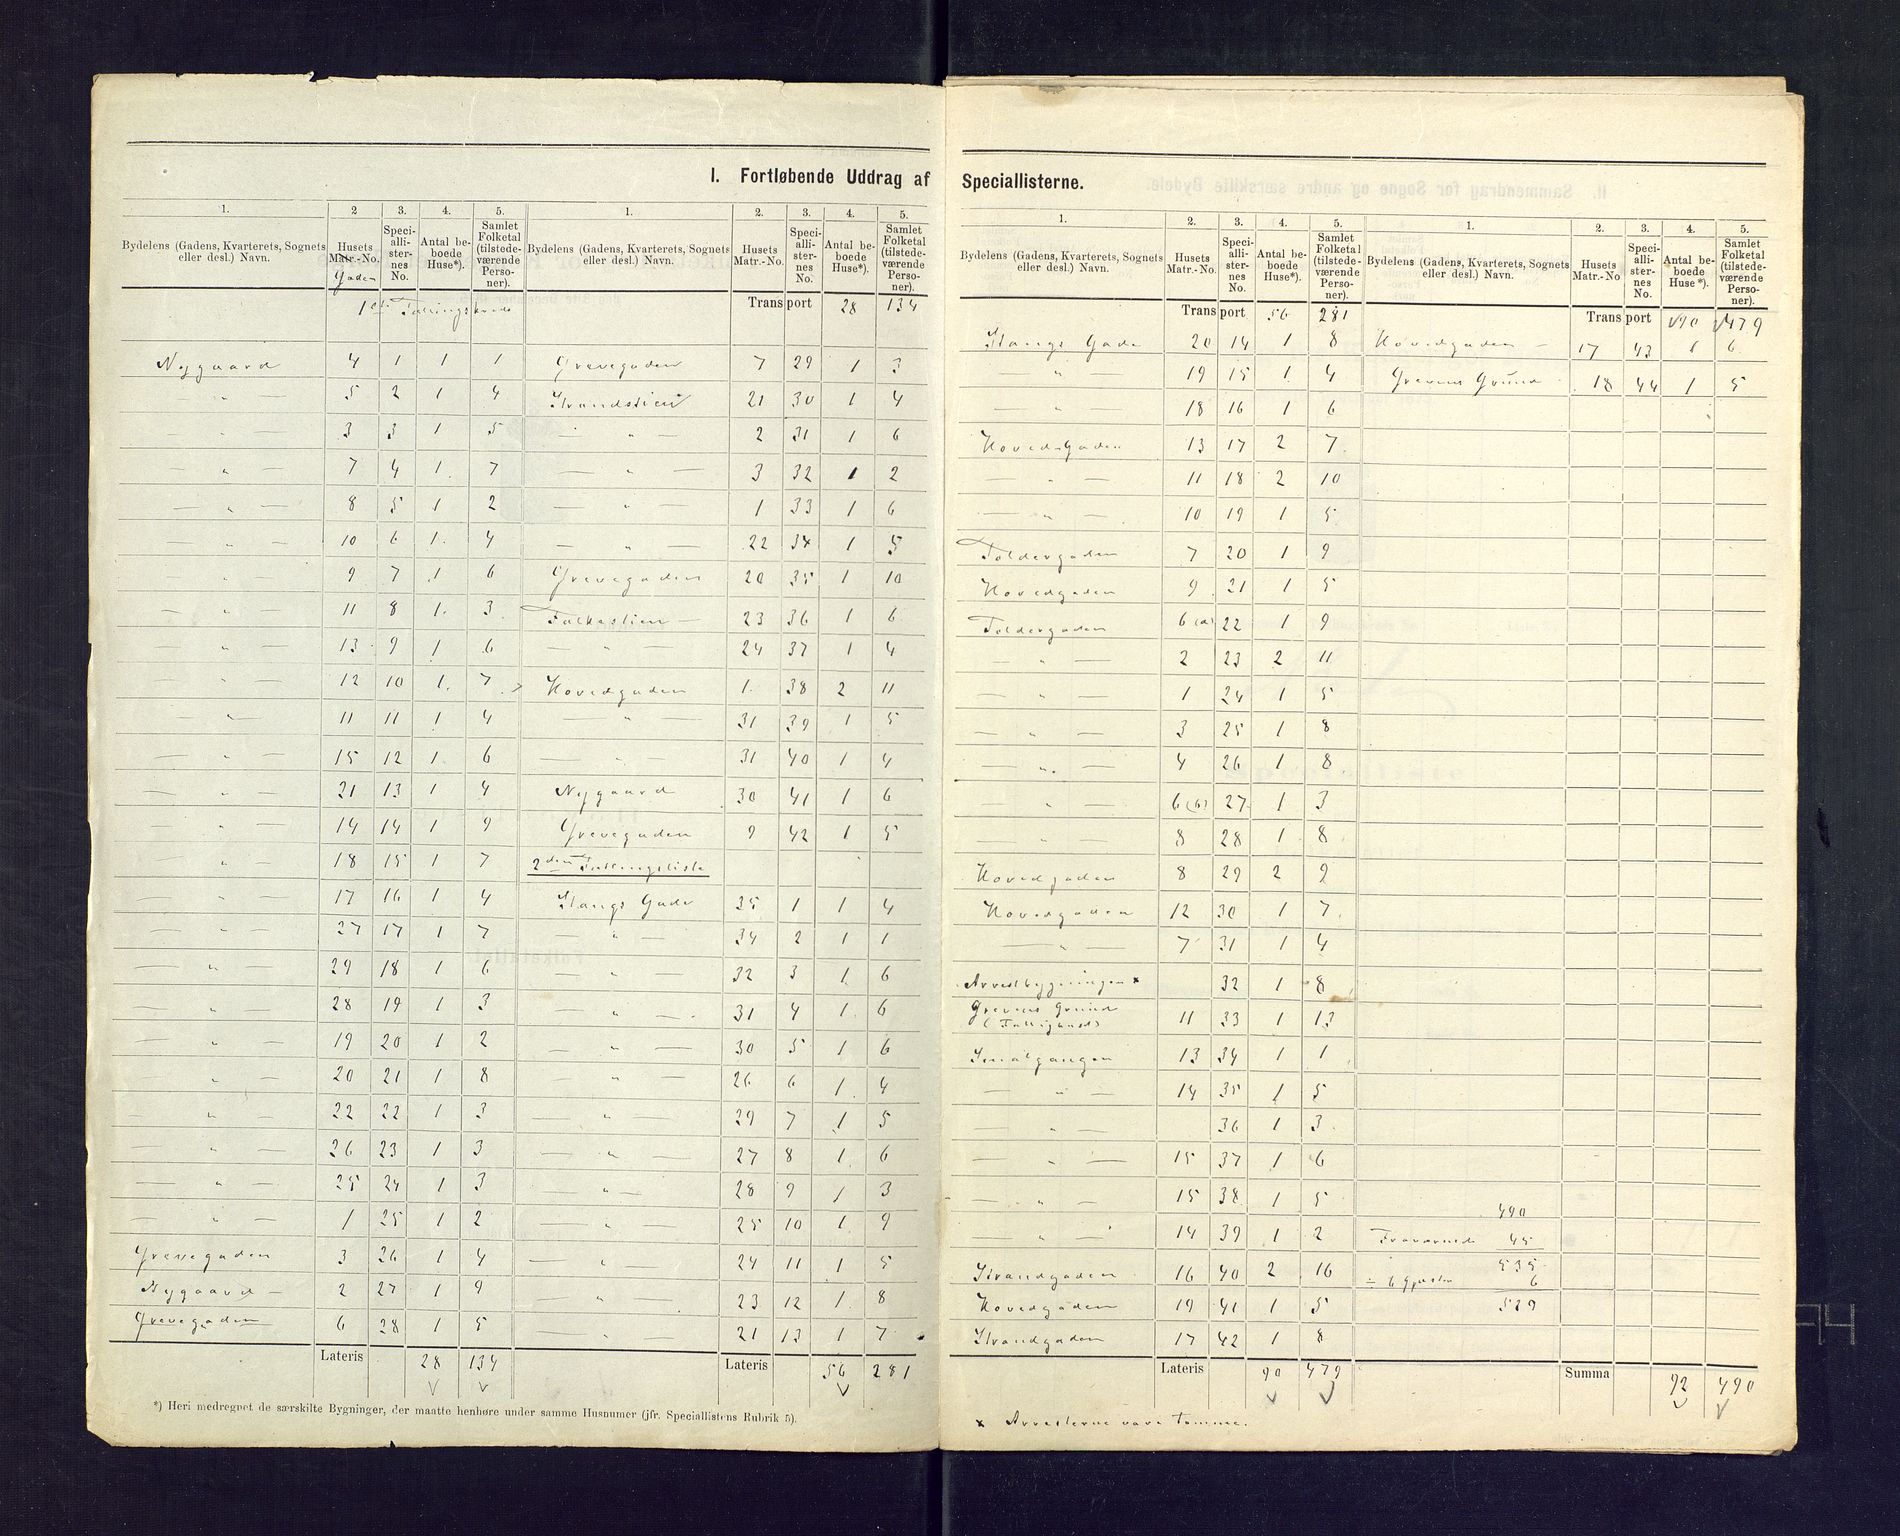 I. Fortløbende Uddrag af Speciallisterne.
1. 2 3. 4. 5. 1. 2. 3. 4. 5.
Bydelens (Gadens, Kvarterets, Sognets eller desl.) Navn. Husets Matr.-No. Gaden Speciallisternes No. Antal beboede Huse*). Samlet Folketal (tilstedeværende Personer). Bydelens (Gadens, Kvarterets, Sognets eller desl.) Navn. Husets Matr.-No. Speciallisternes No. Antal beboede Huse*). Samlet Folketal (tilstedeværende Personer).
1ste Tællingskreds Transport 28 134
Nygaard 4 1 1 1 Grevegaden 7 29 1 3
— „ — 5 2 1 4 Strandstien 21 30 1 4
— „ — 3 3 1 5 — „ — 2 31 1 6
— „ — 7 4 1. 7 — „ — 3 32 1 2
— „ — 8 5 1 2 — „ — 1 33 1 6
— „ — 10 6 1. 4 — „ — 22 34 1 5
— „ — 9 7 1 6 Grevegaden 20 35 1 10
— „ — 11 8 1. 3 Falkestien — 23 36 1 6
— „ — 13 9 1 6 — „ — 24 37 1 4
— „ — 12 10 1. 7 Hovedgaden 1. 38 2 11
— „ — 11 11 1 4 — „ — 31 39 1 5
— „ — 15 12 1. 6 — „ — 31 40 1 4
— „ — 21 13 1 4 Nygaard 30 41 1 6
— „ — 14 14 1 9 Grevegaden 9 42 1 5
— „ — 18 15 1 7 2den Tællingsliste
— „ — 17 16 1 4 Stangs Gade 35 1 1 4
— „ — 27 17 1 7 — „ — 34 2 1 1
— „ — 29 18 1 6 — „ — 32 3 1 6
— „ — 28 19 1 3 — „ — 31 4 1 6
— „ — 19 20 1 2 — „ — 30 5 1 6
— „ — 20 21 1 8 — „ — 26 6 1 4
— „ — 22 22 1 3 — „ — 29 7 1 5
— „ — 26 23 1 3 — „ — 27 8 1 6
— „ — 25 24 1 3 — „ — 28 9 1 3
— „ — 1 25 1 2 — „ — 25 10 1 9
Grevegaden 3 26 1 4 — „ — 24 11 1 5
Nygaard — 2 27 1 9 — „ — 23 12 1 8
Grevegaden 6 28 1 5 — „ — 21 13 1 7
Lateris 28 134 Lateris 56 281
*) Heri medregnet de særskilte Bygninger, der maatte henhøre under samme Husnumer (jfr. Speciallistens Rubrik 5).
1. 2. 3. 4. 5. 1. 2. 3. 4. 5.
Bydelens (Gadens, Kvarterets, Sognets eller desl.) Navn. Husets Matr.-No. Speciallisternes No. Antal beboede Huse*). Samlet Folketal (tilstedeværende Personer). Bydelens (Gadens, Kvarterets, Sognets eller desl.) Navn. Husets Matr.-No Speciallisternes No. Antal beboede Huse*). Samlet Folketal (tilstedeværende Personer).
Transport 56 281 Transport 90 479
Stangs Gade 20 14 1 8 Hovedgaden — 17 43 1 6
— „ — 19 15 1 4 Grevens Grund 18 44 1 5
— „ — 18 16 1 6
Hovedgaden 13 17 2 7
— „ — 11 18 2 10
— „ — 10 19 1 5
Toldergaden 7 20 1 9
Hovedgaden 9 21 1 5
Toldergaden 6 (a) 22 1 9
— „ — 2 23 2 11
— „ — 1 24 1 5
— „ — 3 25 1 8
— „ — 4 26 1 8
— „ — 6 (b) 27 1 3
— „ — 8 28 1 8
Hovedgaden 8 29 2 9
Hovedgaden 12 30 1 7
— „ — 7 31 1 4
Arrestbygningen x 32 1 8
Grevens Grund
11 33 1 13
Smalgangen 13 34 1 1
— „ — 14 35 1 5
— „ — 36 1 3
— „ — 15 37 1 6
— „ — 15 38 1 5
490
— „ — 14 39 1 2 Fraværende 45
535
Strandgaden 16 40 2 16 ÷ 6 Gjæster 6
Hovedgaden 19 41 1 5 529
Strandgaden 17 42 1 8
Lateris 90 479 Summa 92 490
x Arresterne vare tomme.